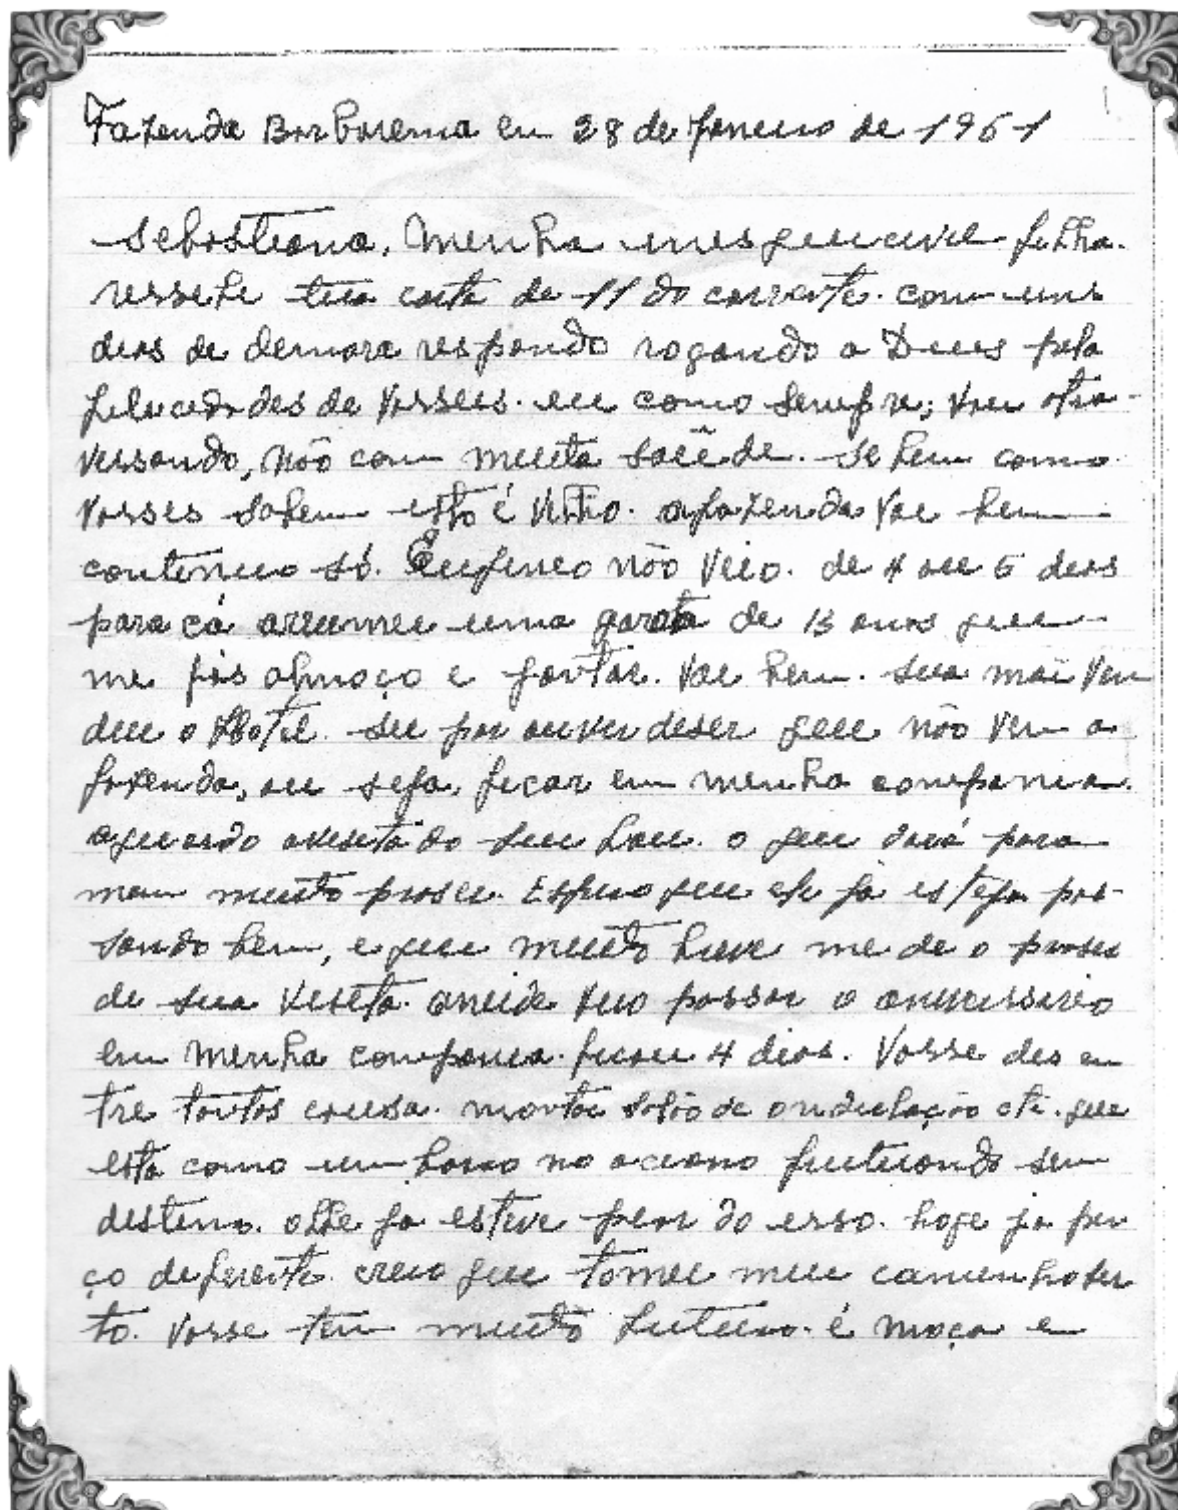 Fazenda Borborema em 28 de Janeiro de 1961
Sebastiana, Minha inesquecivel filha.
ressebe tua carta de 11 do corrente. com uns
dias de demora respondo rogando a Deus pela
felicidades de vosseis. eu como sempre; vou atra-
vessando, não com muita saúde. se bem como
vosses sabem isto é velho. a fazenda vae bem
continuo só. Eugineo não veio. de 4 ou 5 dias
para cá arrumei uma garota de 13 anos que
me fás almoço e jantar. vae bem. sua mãi ven
deu o Hotel. sei por ouvir deser que não vem a
fazenda, ou seja, ficar em minha compania.
aguardo avisita do seu que dará para
mem muito praser. Espero que ele já esteja pas-
sando bem, e que muito breve me de o praser
de sua visita. veio passar o aniverssario
em minha compania. ficou 4 dias. Vosse des en
tre tantos cousa. montou salão de ondulação etc. que
esta como um barco no aceano frutuando sem
destino. olhe ja esteve pior do isso. hoje ja pen
ço diferente creio que tomei meu caminho ser
to. Vosse tem muito futuro. é moça e